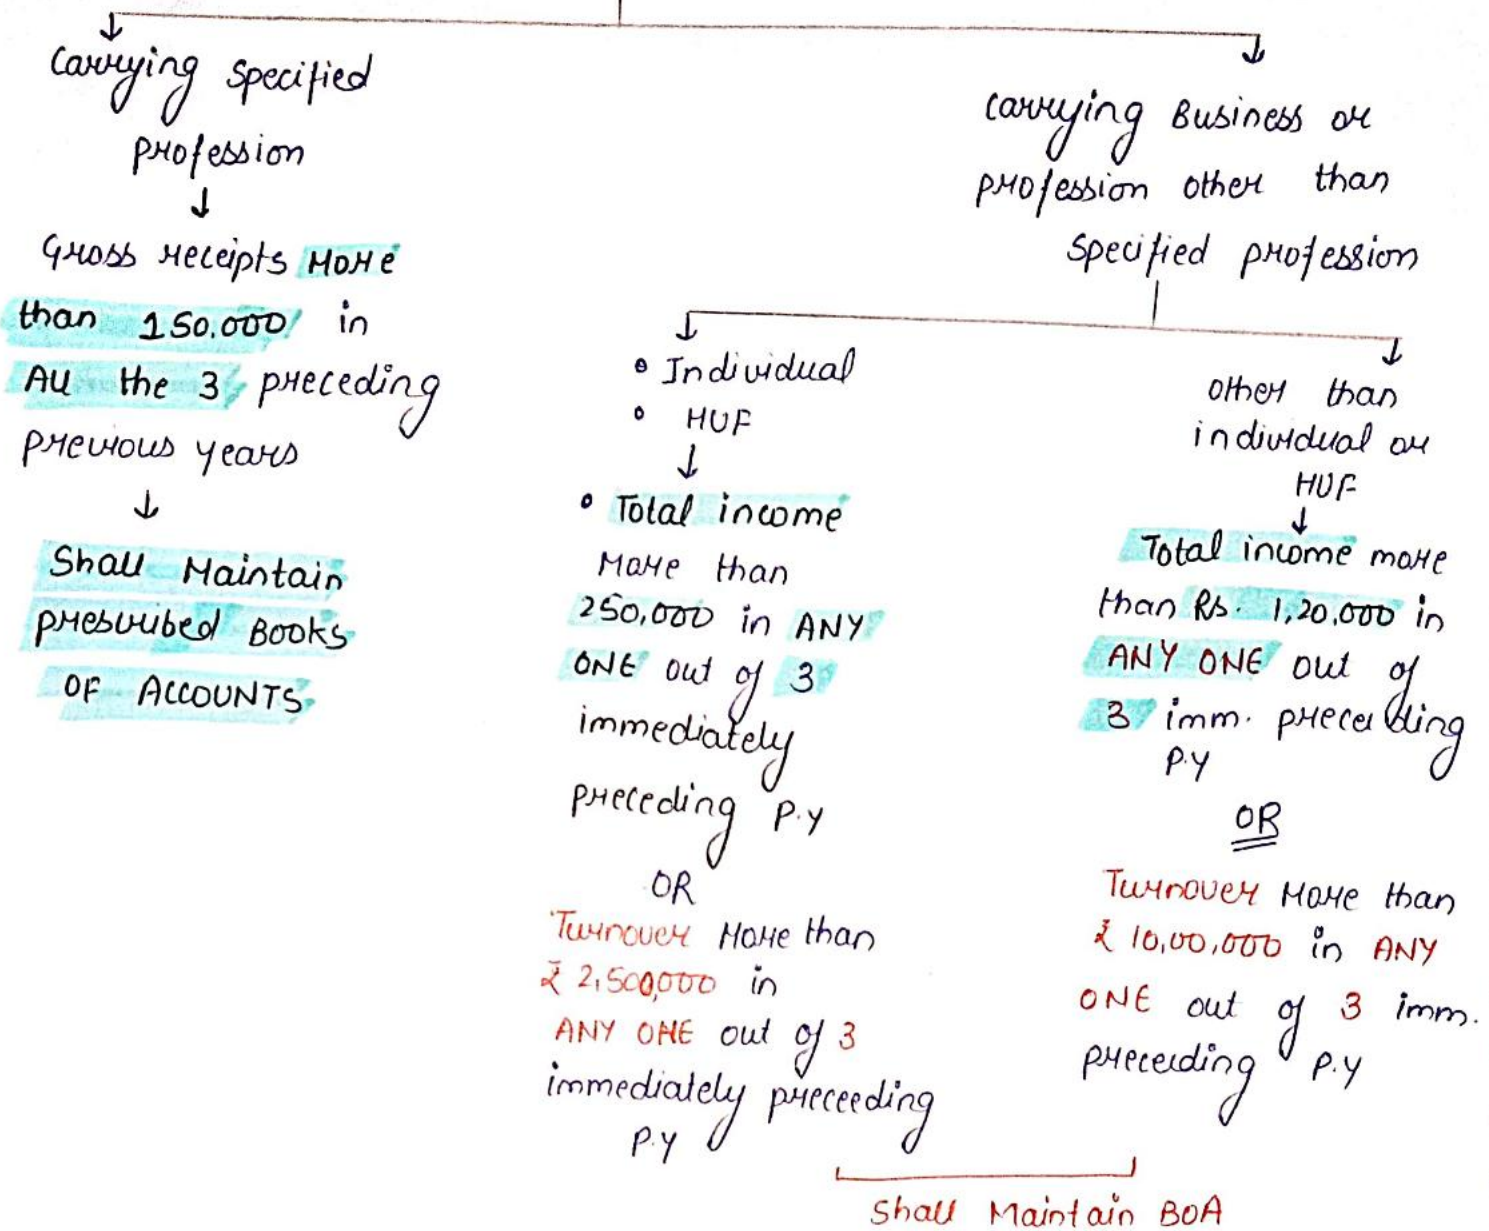 Carrying Specified
profession
Gross receipts More
than 150,000 in
All the 3 preceding
previous years
Shall Maintain
prescribed Books
OF ACCOUNTS
Carrying Business or
profession other than
Specified profession
• Individual
• HUF
• Total income
More than
250,000 in ANY
ONE out of 3
immediately
preceding P.Y
OR
Turnover More than
₹ 2,500,000 in
ANY ONE out of 3
immediately preceeding
P.Y
other than
individual or
HUF
Total income more
than Rs. 1,20,000 in
ANY ONE out of
3 imm. preceeding
P.Y
OR
Turnover More than
₹ 10,00,000 in ANY
ONE out of 3 imm.
preceeding P.Y
Shall Maintain BOA